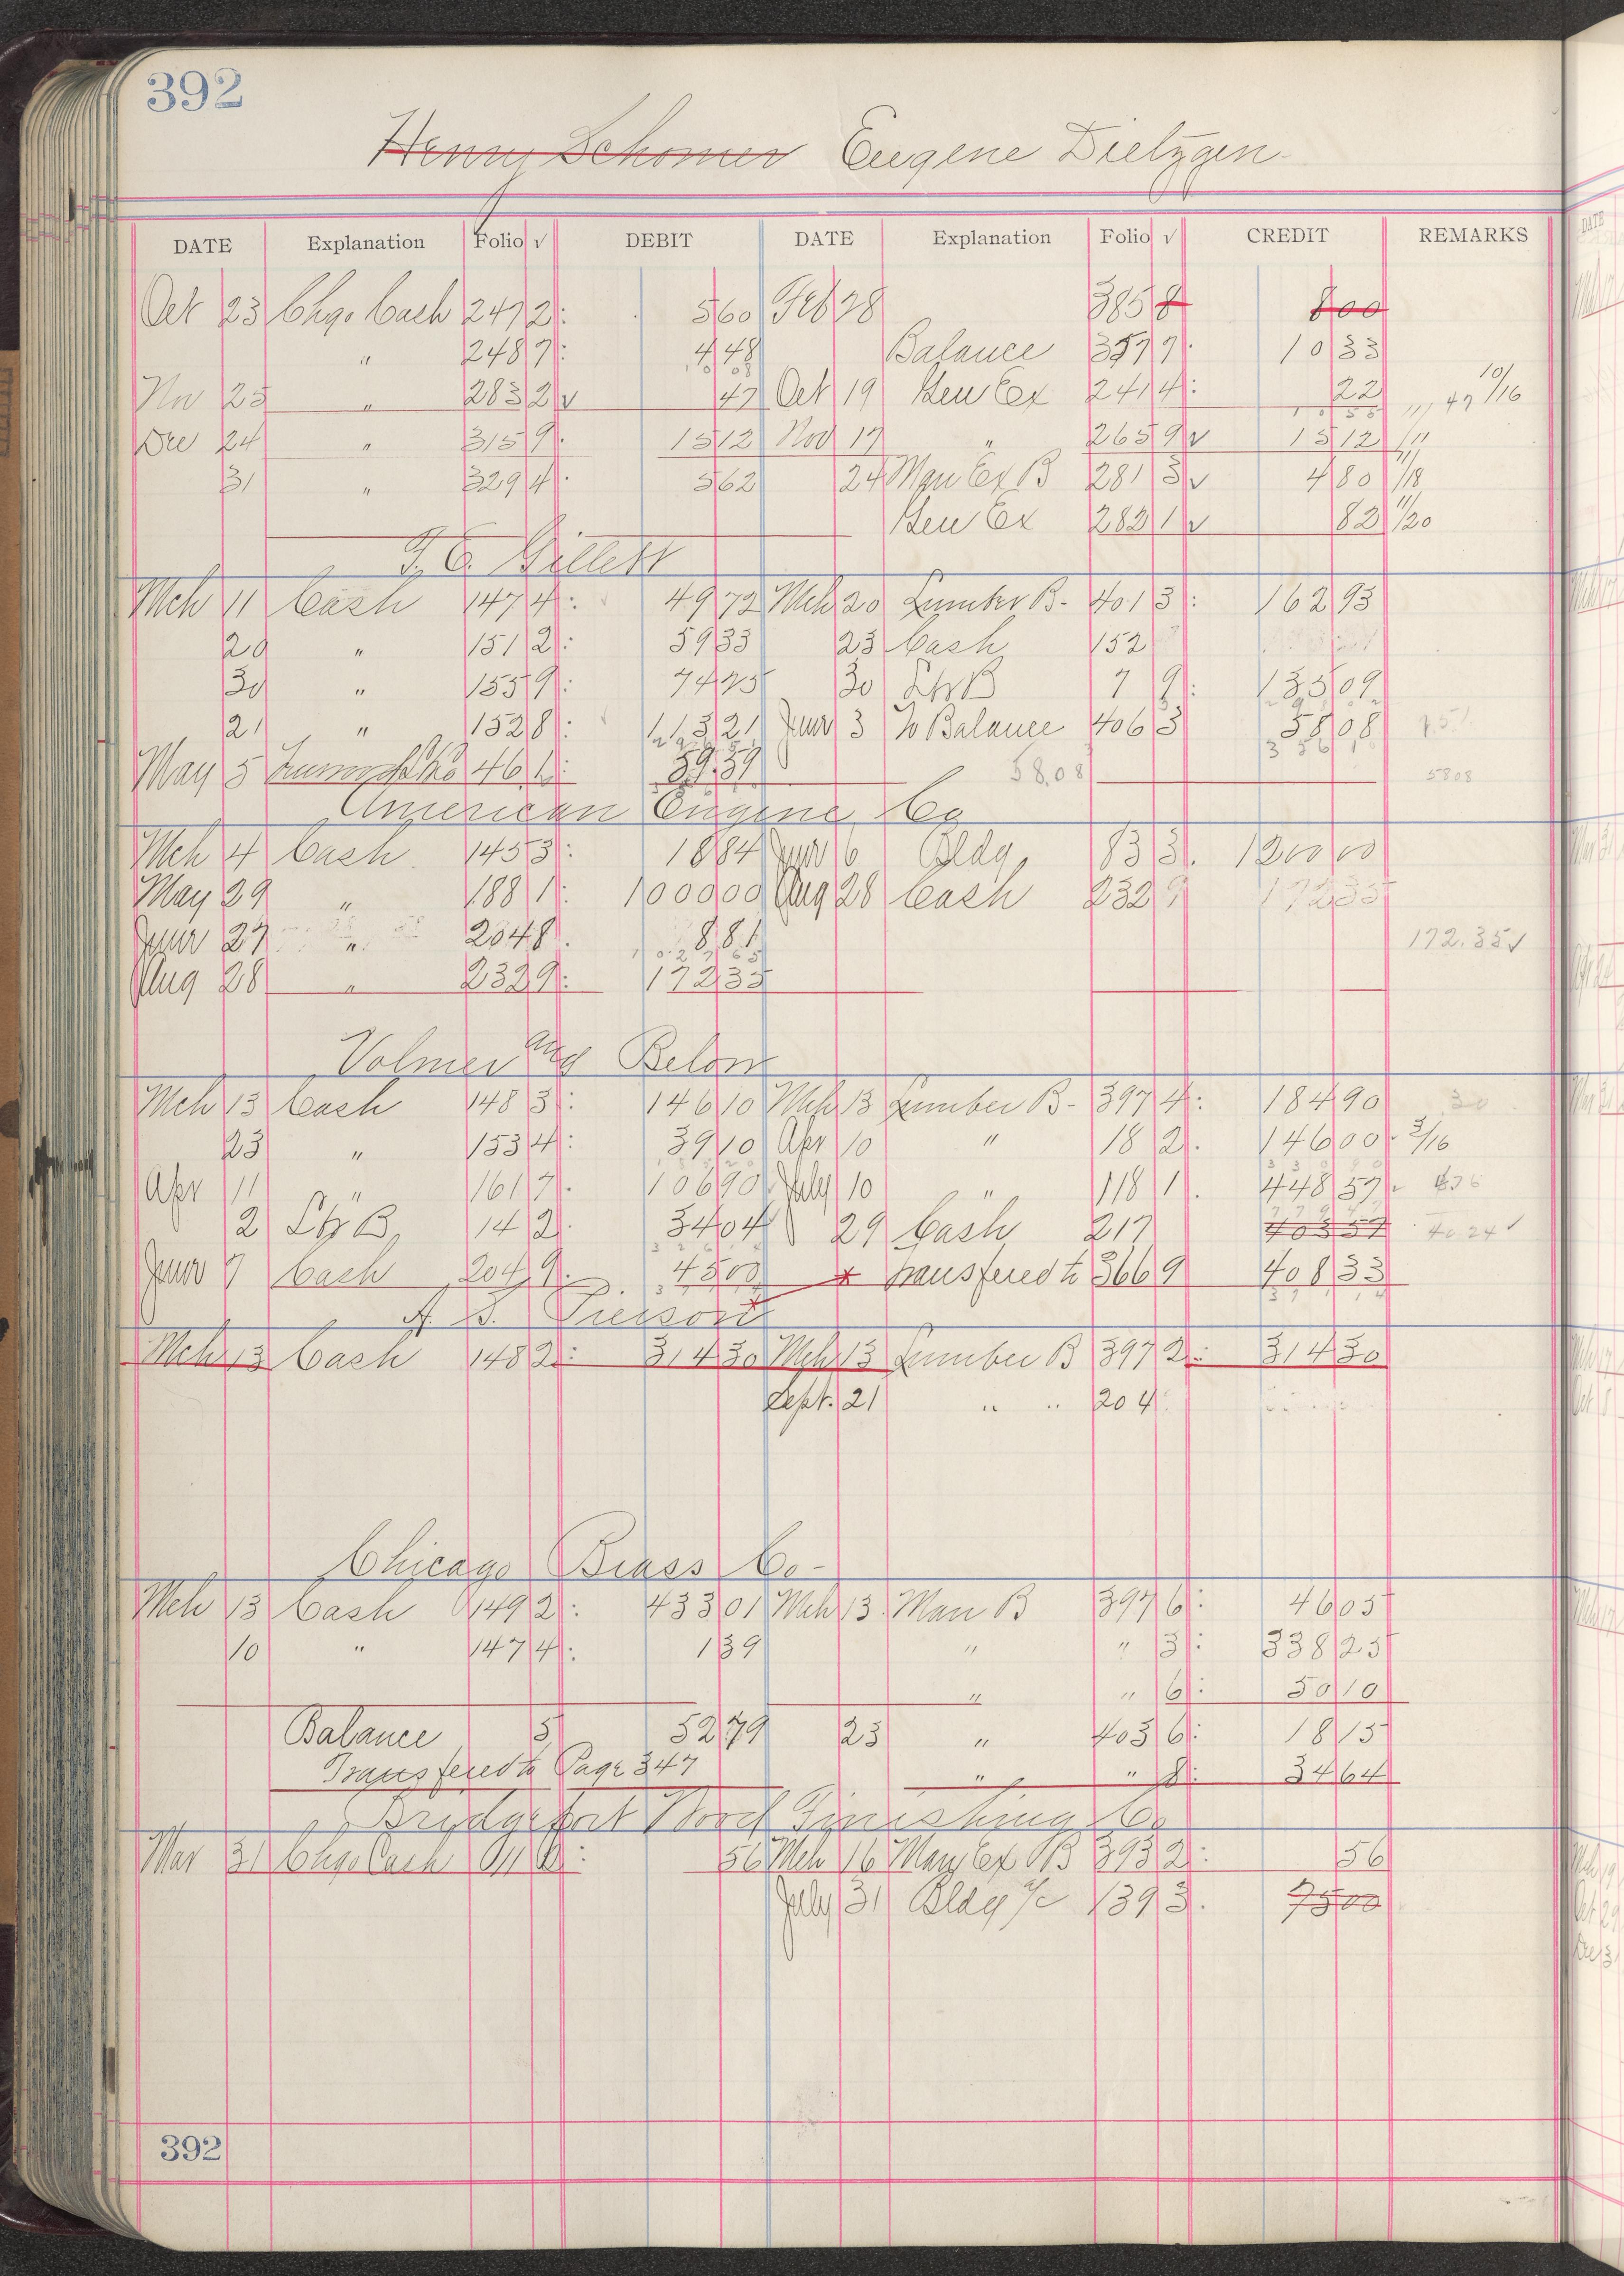 392
Henry Schomer Eugene Dietzgen
DATE Explanation Folio √ DEBIT DATE Explanation Folio √ CREDIT REMARKS
Oct 23 Chgo Cash 247 2: 5 60 Feb 28 385 8 8 00
" 248 7: 4 48 Balance 357 7. 10 33
Nov 25 " 283 2 v 47 Oct 19 Gen Ex 241 4: 22 47 10/16
Dec 24 " 315 9: 15 12 Nov 17 " 265 9 v 15 12
31 " 329 4: 5 62 24 Man Ex B 281 3 v 4 80 11/18
Gen Ex 282 1 v 82 11/20
T. E. Gillett
Mch 11 Cash 147 4: 49 72 Mch 20 Lumber B- 401 3: 162 93
20 " 151 2: 59 33 23 Cash 152
30 " 155 9: 74 75 30 Lbr B 7 9: 135 09
21 " 152 8: 113 21 June 3 To Balance 406 3 58 08
May 5 46 1: 59.39 58.08 5808
American Engine Co
Mch 4 Cash 145 3: 18 84 June 6 Bldg. 83 3. 1200 00
May 29 " 188 1: 1000 00 Aug 28 Cash 232 9 172 35
June 27 " 204 8. 8 81 172.35 √
Aug 28 " 232 9: 172 35
Volmer and Below
Mch 13 Cash 148 3: 146 10 Mch 13 Lumber B- 397 4: 184 90
23 " 153 4: 39 10 Apr 10 " 18 2. 146 00 3/16
Apr 11 " 161 7. 106 90 July 10 " 118 1. 448 57
2 Lbr B. 14 2. 34 04 29 Cash 217 403 57 40.24 √
June 7 Cash 204 9. 45 00 * Transfered to 366 9 408 33
A. S. Pierson *
Mch 13 Cash 148 2: 314 30 Mch 13 Lumber B 397 2: 314 30
Sept. 21 " " 204
Chicago Brass Co-
Mch 13 Cash 149 2: 433 01 Mch 13 Man B 397 6: 46 05
10 " 147 4: 1 39 " " 3: 338 25
" " 6: 50 10
Balance 5 52 79 23 " 403 6: 18 15
Transfered to Page 347 " " 8: 34 64
Bridgeport Wood Finishing Co
Mar 31 Chgo Cash 56 Mch 16 Man Ex B 393 2: 56
July 31 Bldg a/c 139 3. 75 00
392